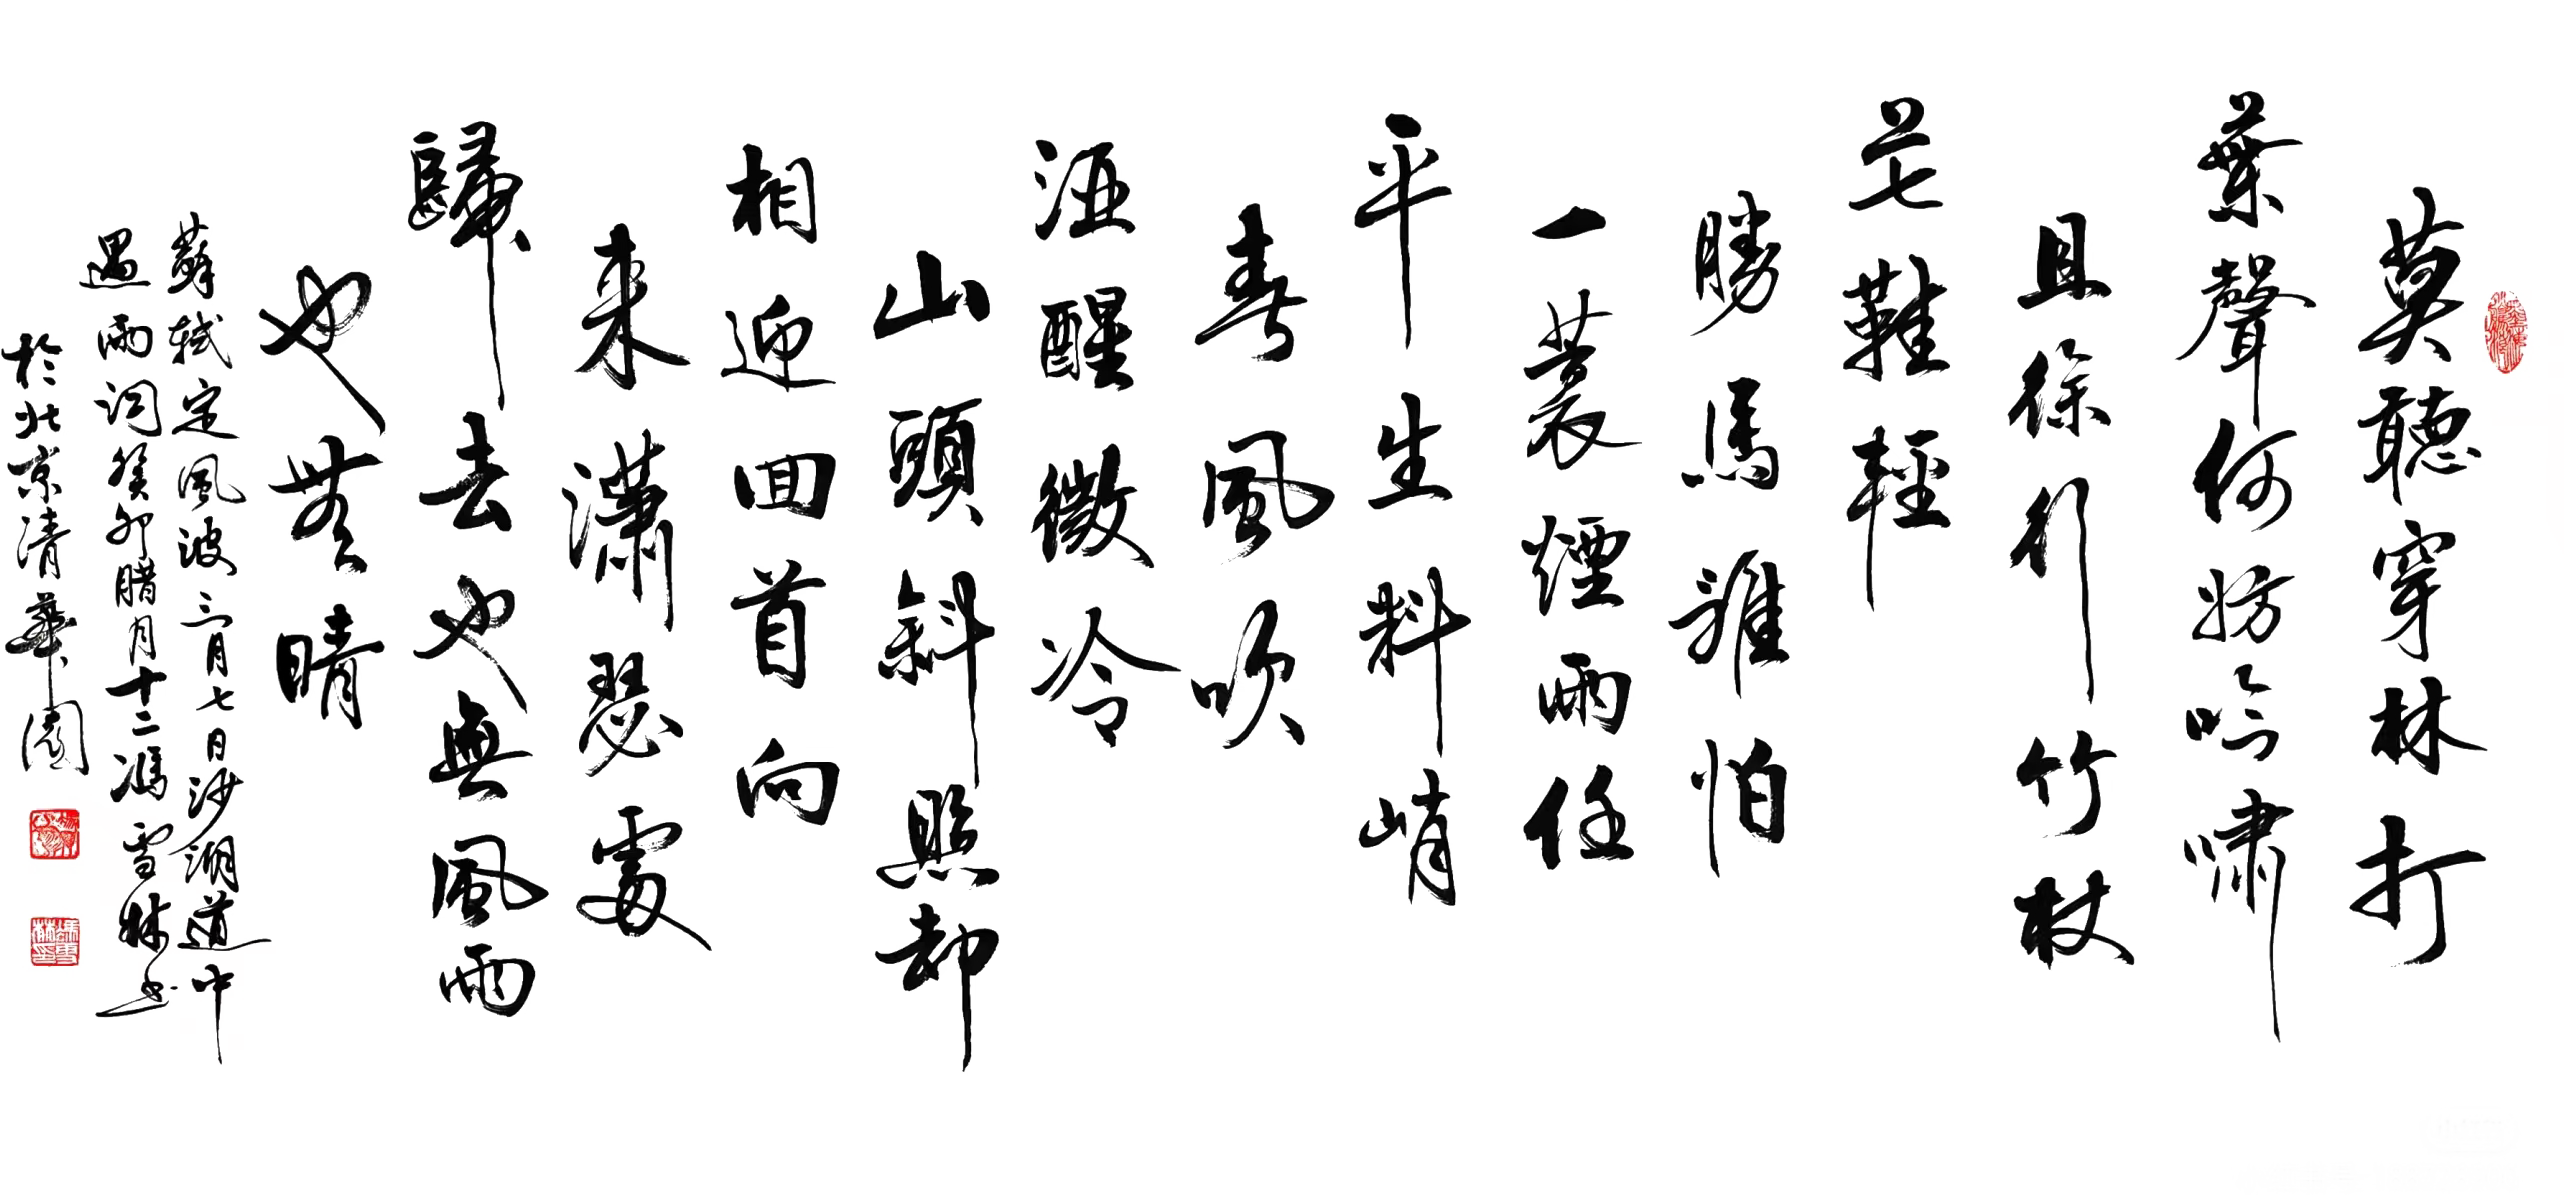 莫聽穿林打
葉聲何妨吟嘯
且徐行竹杖
芒鞋輕
勝馬誰怕
一蓑煙雨任
平生料峭
春風吹
酒醒微冷
山頭斜照却
相迎回首向
来瀟瑟處
歸去也無風雨
也無晴
蘇軾定風波三月七日沙湖道中
遇雨词癸卯腊月十二馮雪林书
於北京清華園